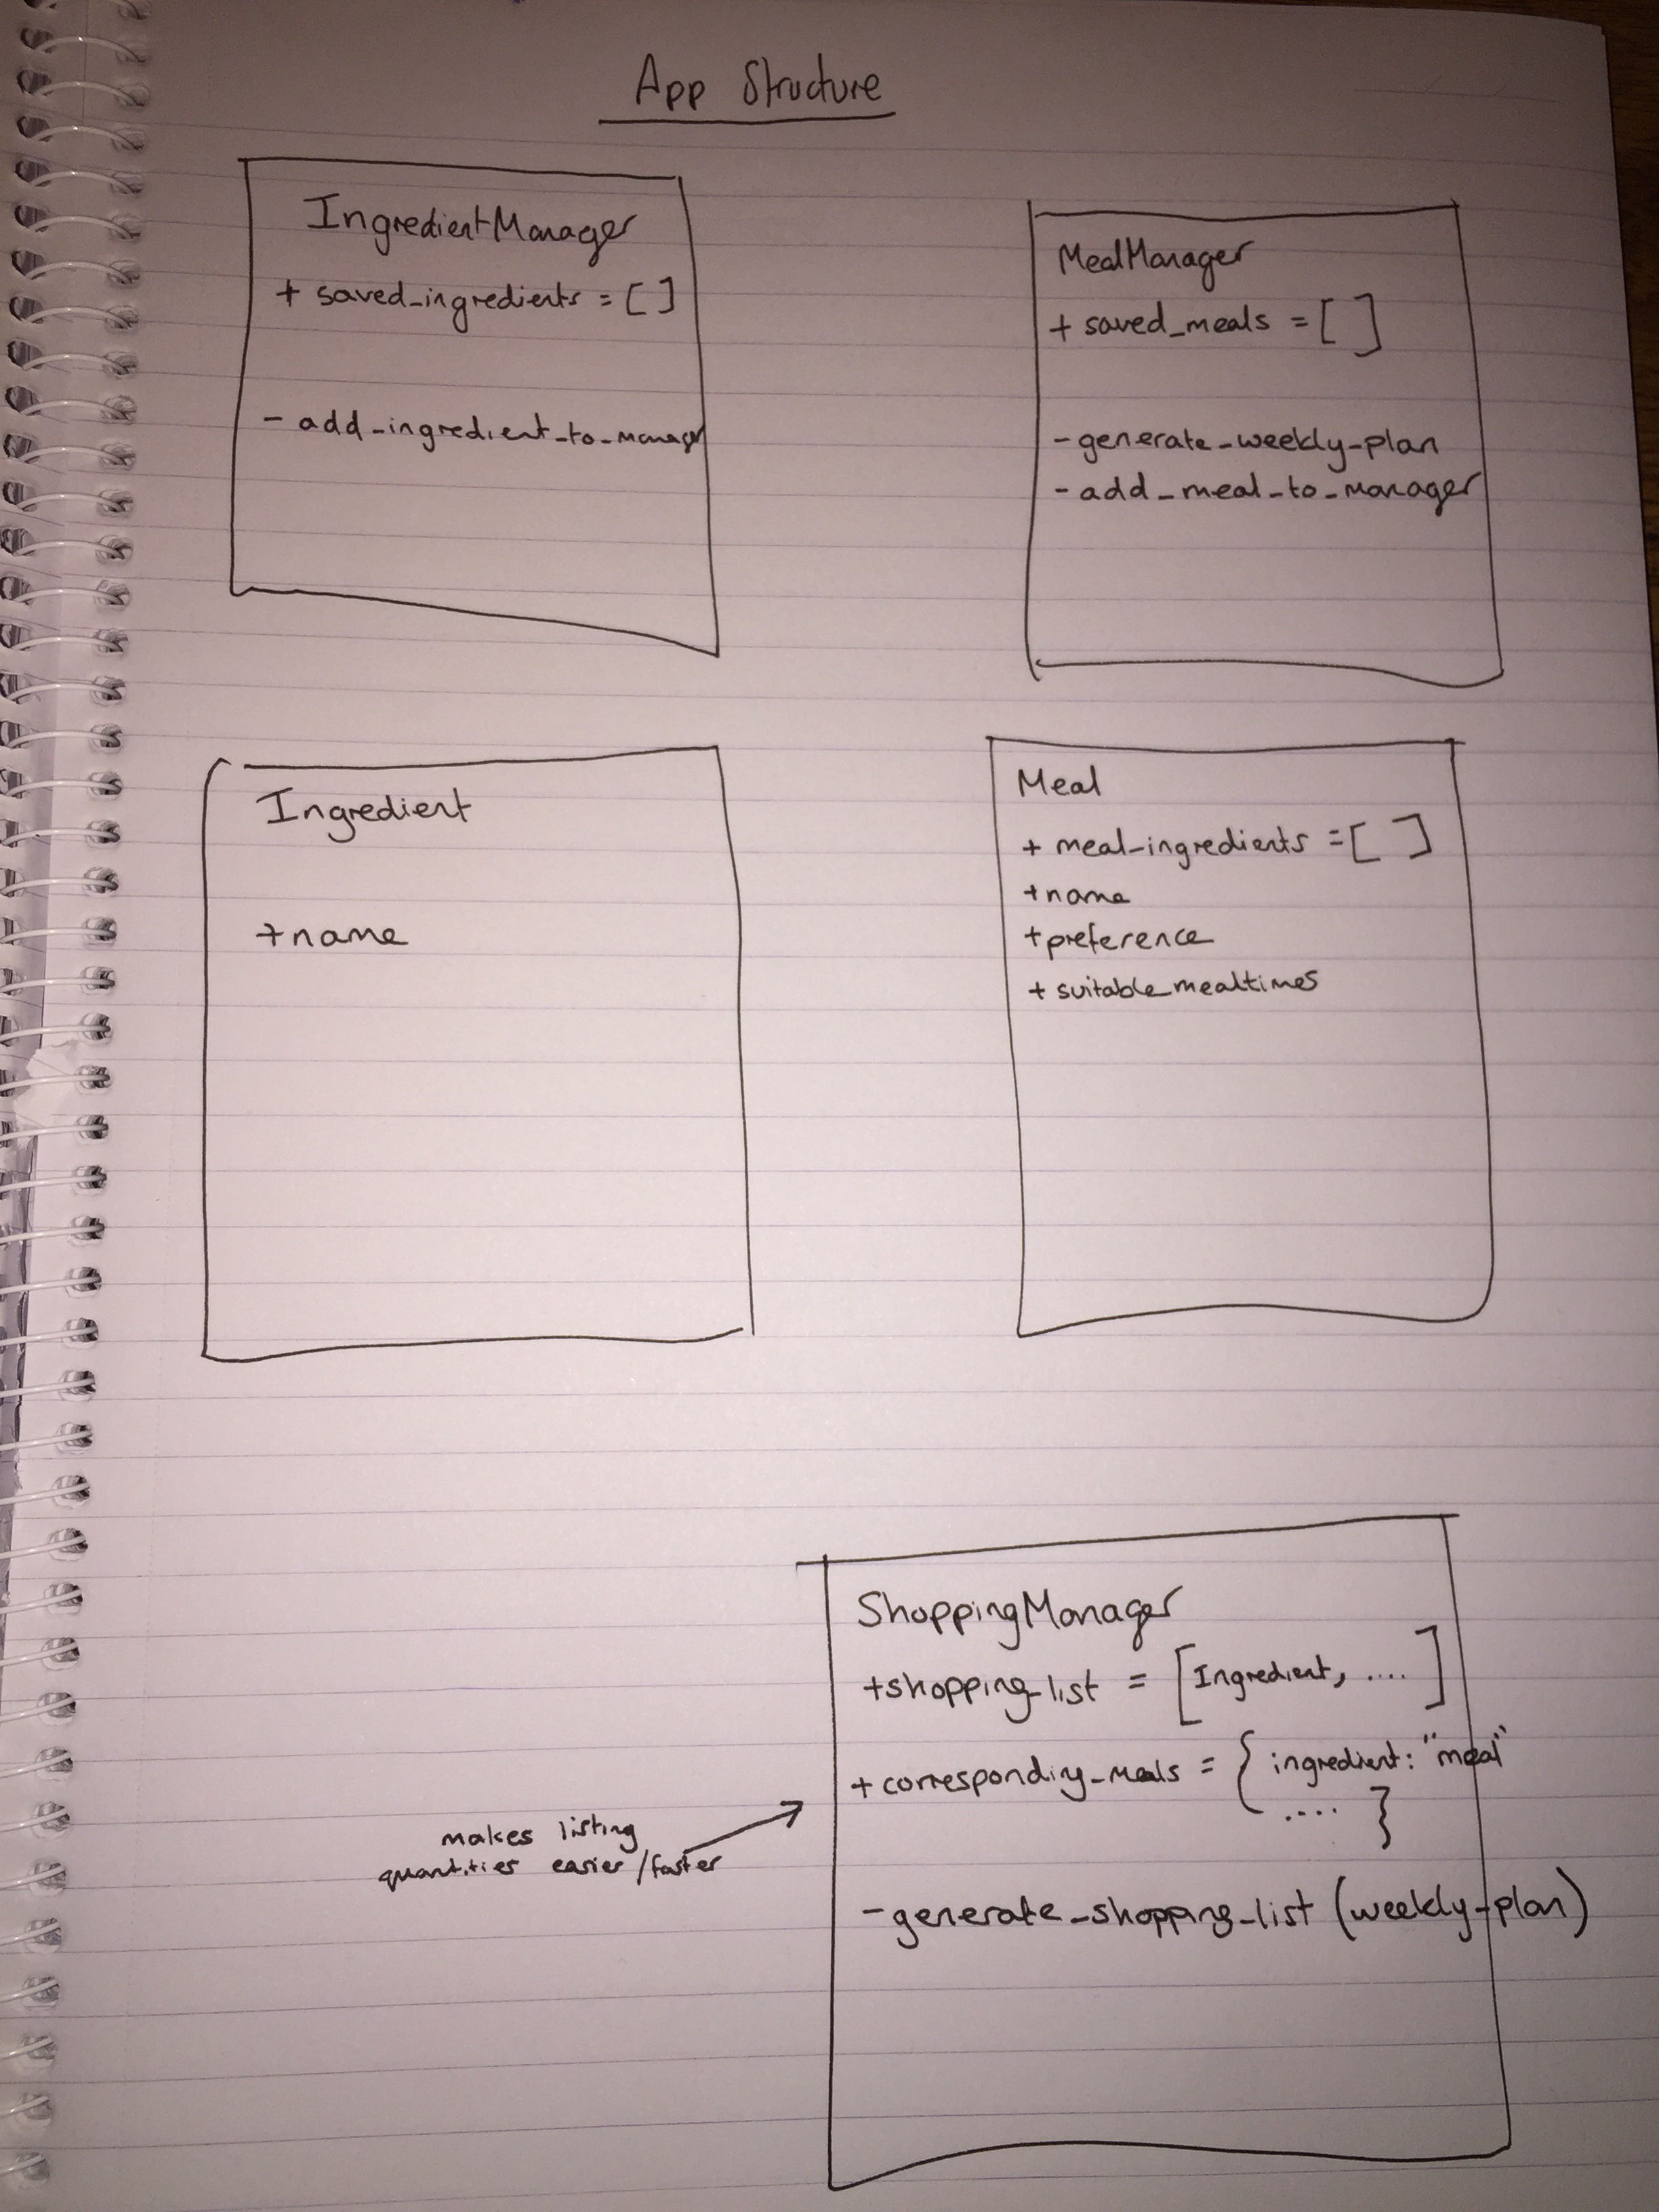 App Structure
IngredientManager
+ saved_ingredients = [ ]
- add_ingredient_to_manager
MealManager
+ saved_meals = [ ]
- generate_weekly_plan
- add_meal_to_manager
Ingredient
+ name
Meal
+ meal_ingredients = [ ]
+ name
+ preference
+ suitable_mealtimes
ShoppingManager
+ shopping_list = [Ingredient, ....]
+ corresponding_meals = { ingredient: "meal"
.... }
makes listing
quantities easier/faster
- generate_shopping_list (weekly_plan)